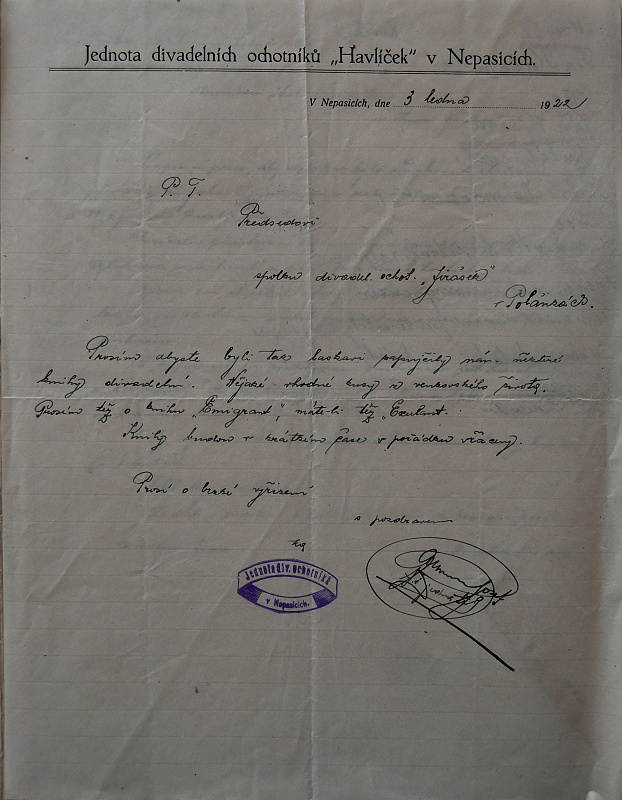 Jednota divadelních ochotníků „Havlíček" v Nepasicích.
V Nepasicích, dne 3 ledna 1922
P. T.
Předsedovi
spolku divadel. ochot. „Jirásek"
v Polánkách.
Prosíme abyste byli tak laskavi zapůjčily nám některé
knihy divadelní. Nějaké vhodné kusy z venkovského života.
Prosím též o knihu „Emigrant", máte-li též „Exulant.
Knihy budou v krátkém čase v pořádku vráceny.
Prosí o brzké vyřízení
s pozdravem
Jednota div. ochotníků
v Nepasicích.